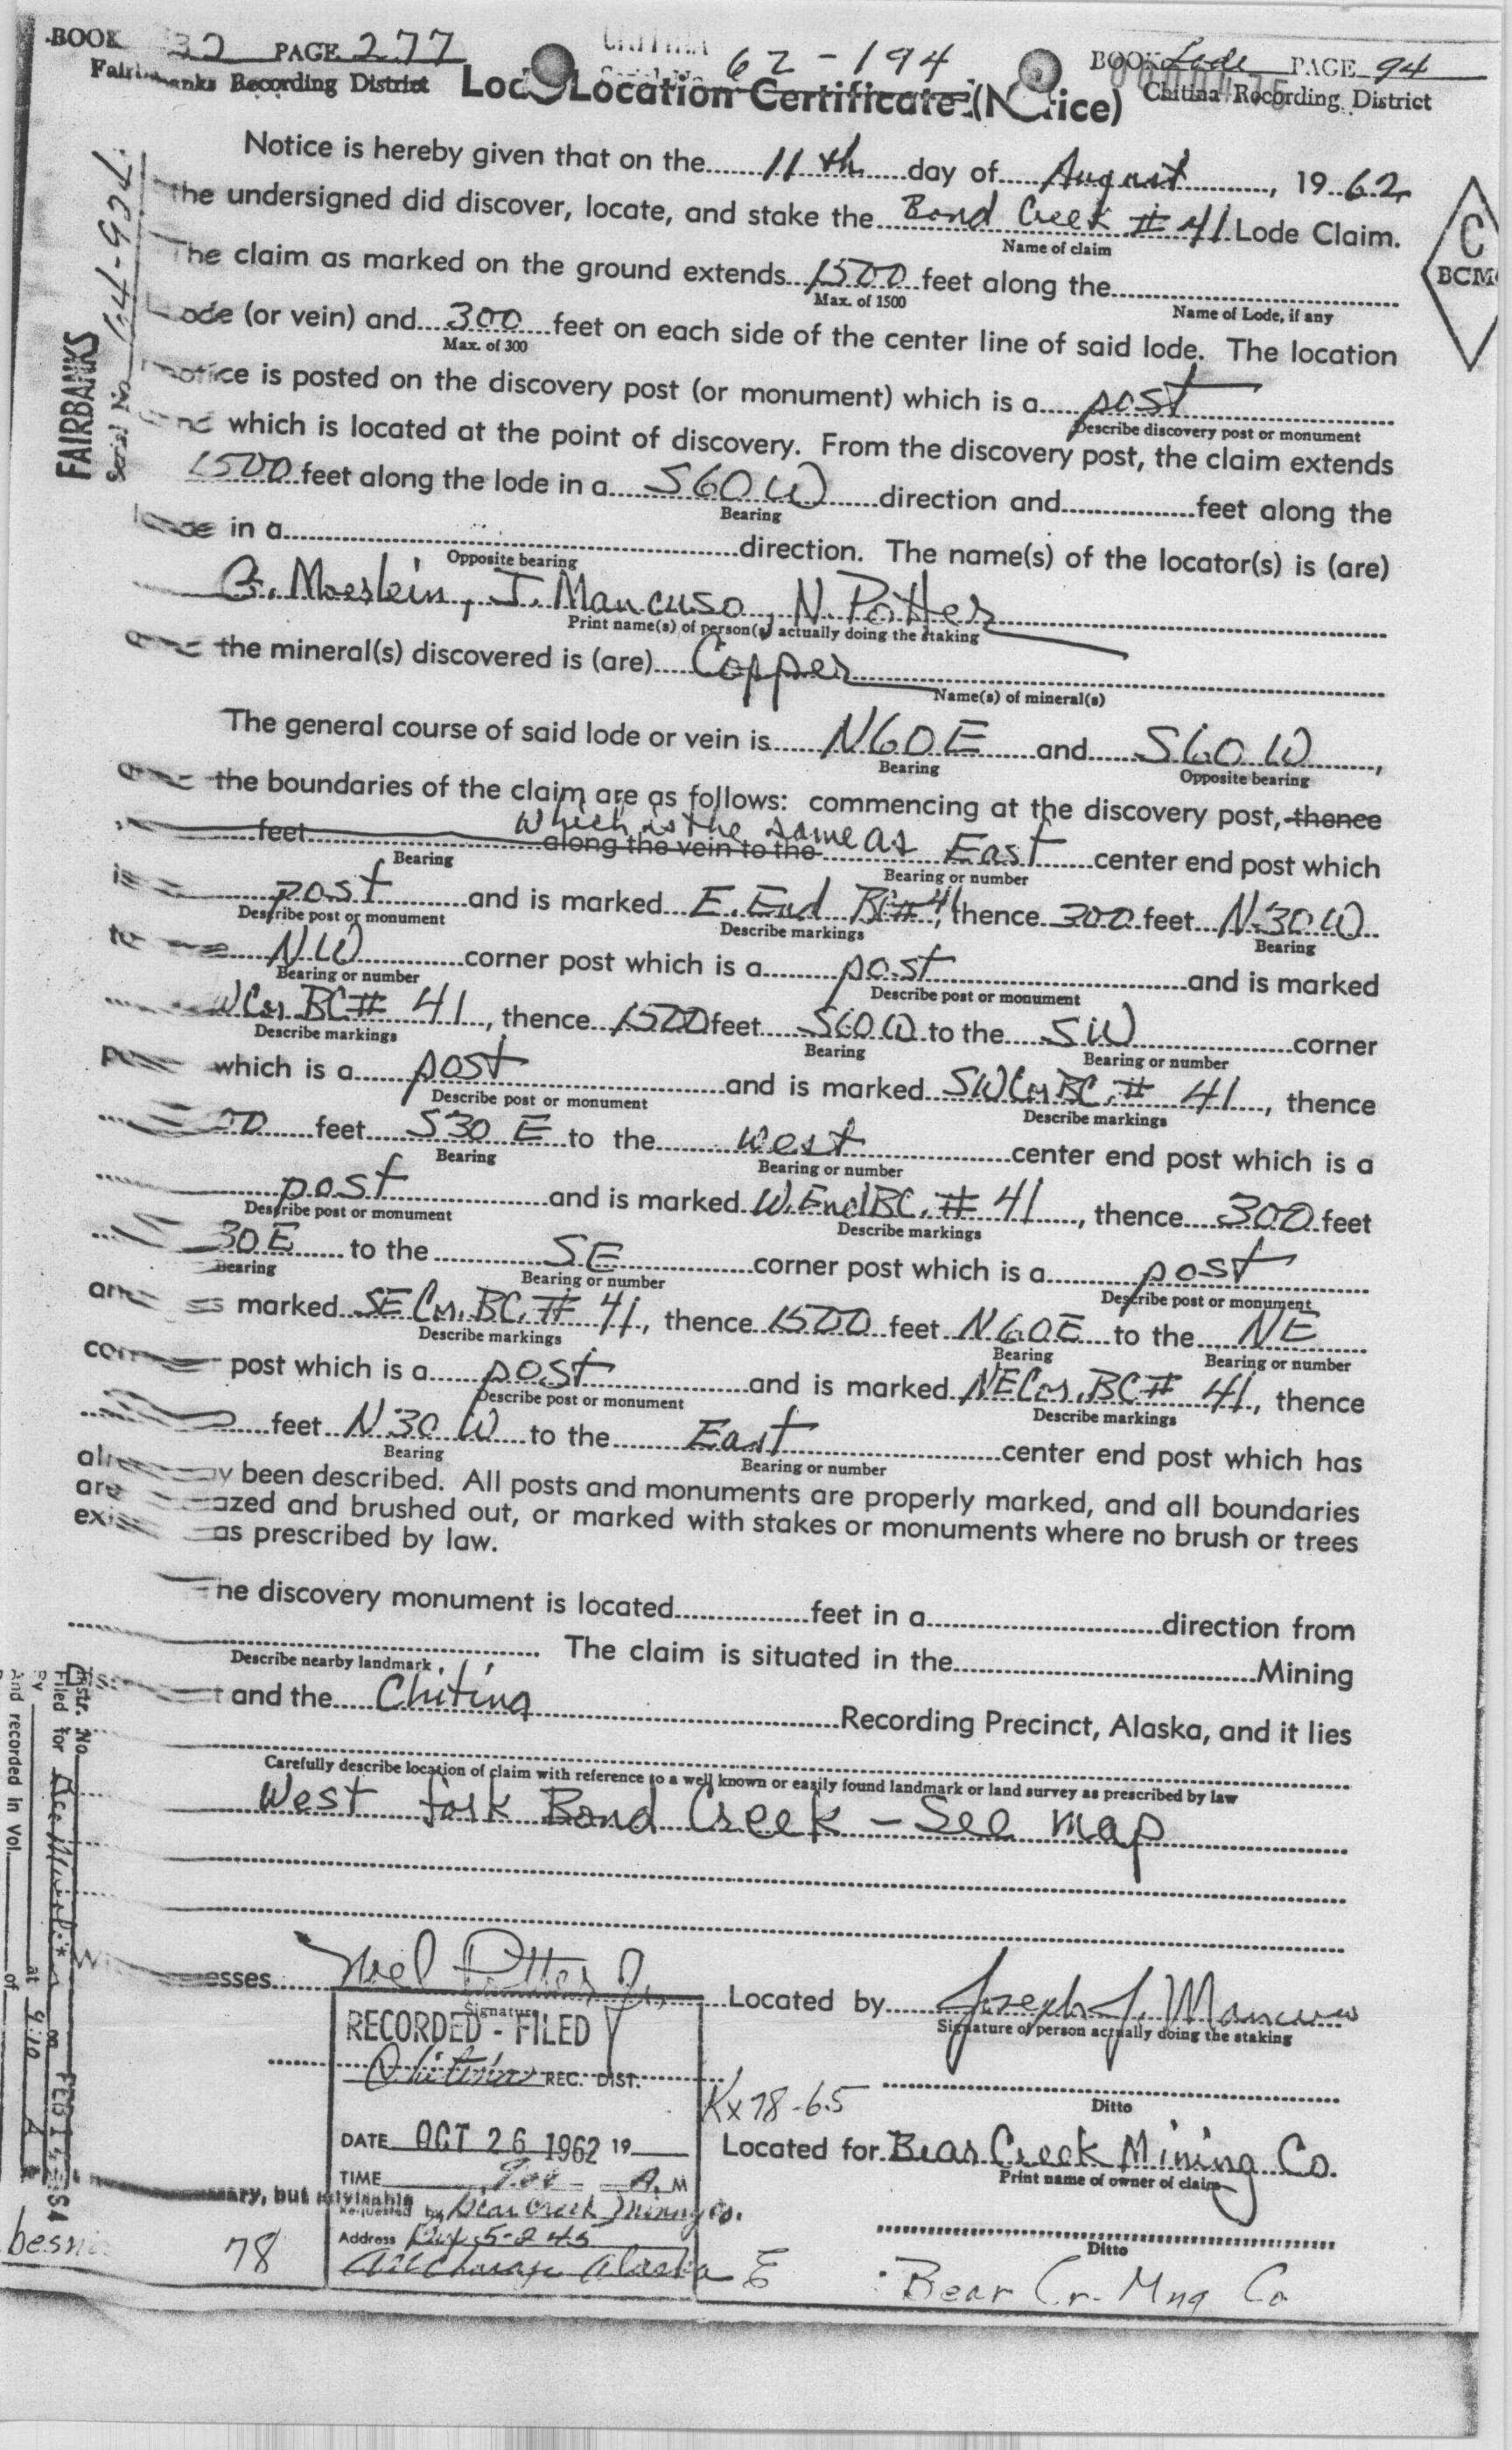 BOOK 32 PAGE 277
Fairbanks Recording District
CHITINA
62-194
BOOK Lode PAGE 94
Chitina Recording District
Lode Location Certificate (Notice)
Notice is hereby given that on the 11th day of August, 1962
the undersigned did discover, locate, and stake the Bond Creek # 41 Lode Claim.
Name of claim
The claim as marked on the ground extends 1500 feet along the
Max. of 1500 Name of Lode, if any
Lode (or vein) and 300 feet on each side of the center line of said lode. The location
Max. of 300
notice is posted on the discovery post (or monument) which is a post
Describe discovery post or monument
and which is located at the point of discovery. From the discovery post, the claim extends
1500 feet along the lode in a S60W direction and feet along the
Bearing
lode in a direction. The name(s) of the locator(s) is (are)
Opposite bearing
G. Moeslein, J. Mancuso, N. Potter
Print name(s) of person(s) actually doing the staking
and the mineral(s) discovered is (are) Copper
Name(s) of mineral(s)
The general course of said lode or vein is N60E and S60W,
Bearing Opposite bearing
and the boundaries of the claim are as follows: commencing at the discovery post, thence
which is the same as
feet along the vein to the East center end post which
Bearing Bearing or number
is a post and is marked E. End BC# 41, thence 300 feet N30W
Describe post or monument Describe markings Bearing
to the NW corner post which is a post and is marked
Bearing or number Describe post or monument
WCor BC# 41, thence 1500 feet S60W to the SW corner
Describe markings Bearing Bearing or number
post which is a post and is marked SWCor BC.# 41, thence
Describe post or monument Describe markings
00 feet S30E to the West center end post which is a
Bearing Bearing or number
post and is marked W.End BC.# 41, thence 300 feet
Describe post or monument Describe markings
30E to the SE corner post which is a post
Bearing Bearing or number Describe post or monument
and is marked SE Cor. BC.# 41, thence 1500 feet N60E to the NE
Describe markings Bearing Bearing or number
corner post which is a post and is marked NECor. BC# 41, thence
Describe post or monument Describe markings
feet N30W to the East center end post which has
Bearing Bearing or number
already been described. All posts and monuments are properly marked, and all boundaries
are blazed and brushed out, or marked with stakes or monuments where no brush or trees
exist as prescribed by law.
The discovery monument is located feet in a direction from
The claim is situated in the Mining
Describe nearby landmark
District and the Chitina Recording Precinct, Alaska, and it lies
Carefully describe location of claim with reference to a well known or easily found landmark or land survey as prescribed by law
West fork Bond Creek - See map
Witnesses Noel Potter Jr. Located by Joseph J. Mancuso
Signature Signature of person actually doing the staking
RECORDED - FILED
Chitina REC. DIST.
Ditto
Kx78-65
DATE OCT 26 1962 19
Located for Bear Creek Mining Co.
Print name of owner of claim
TIME 9:00 A.M
Requested by Bear Creek Mining Co.
Address Box 5-245
Anchorage Alaska
Ditto
78
E
Bear Cr. Mng Co
FAIRBANKS
Serial No.
C
BCMC
Instr. No.
Filed for
By
And recorded in Vol.
at 9:10 A
of